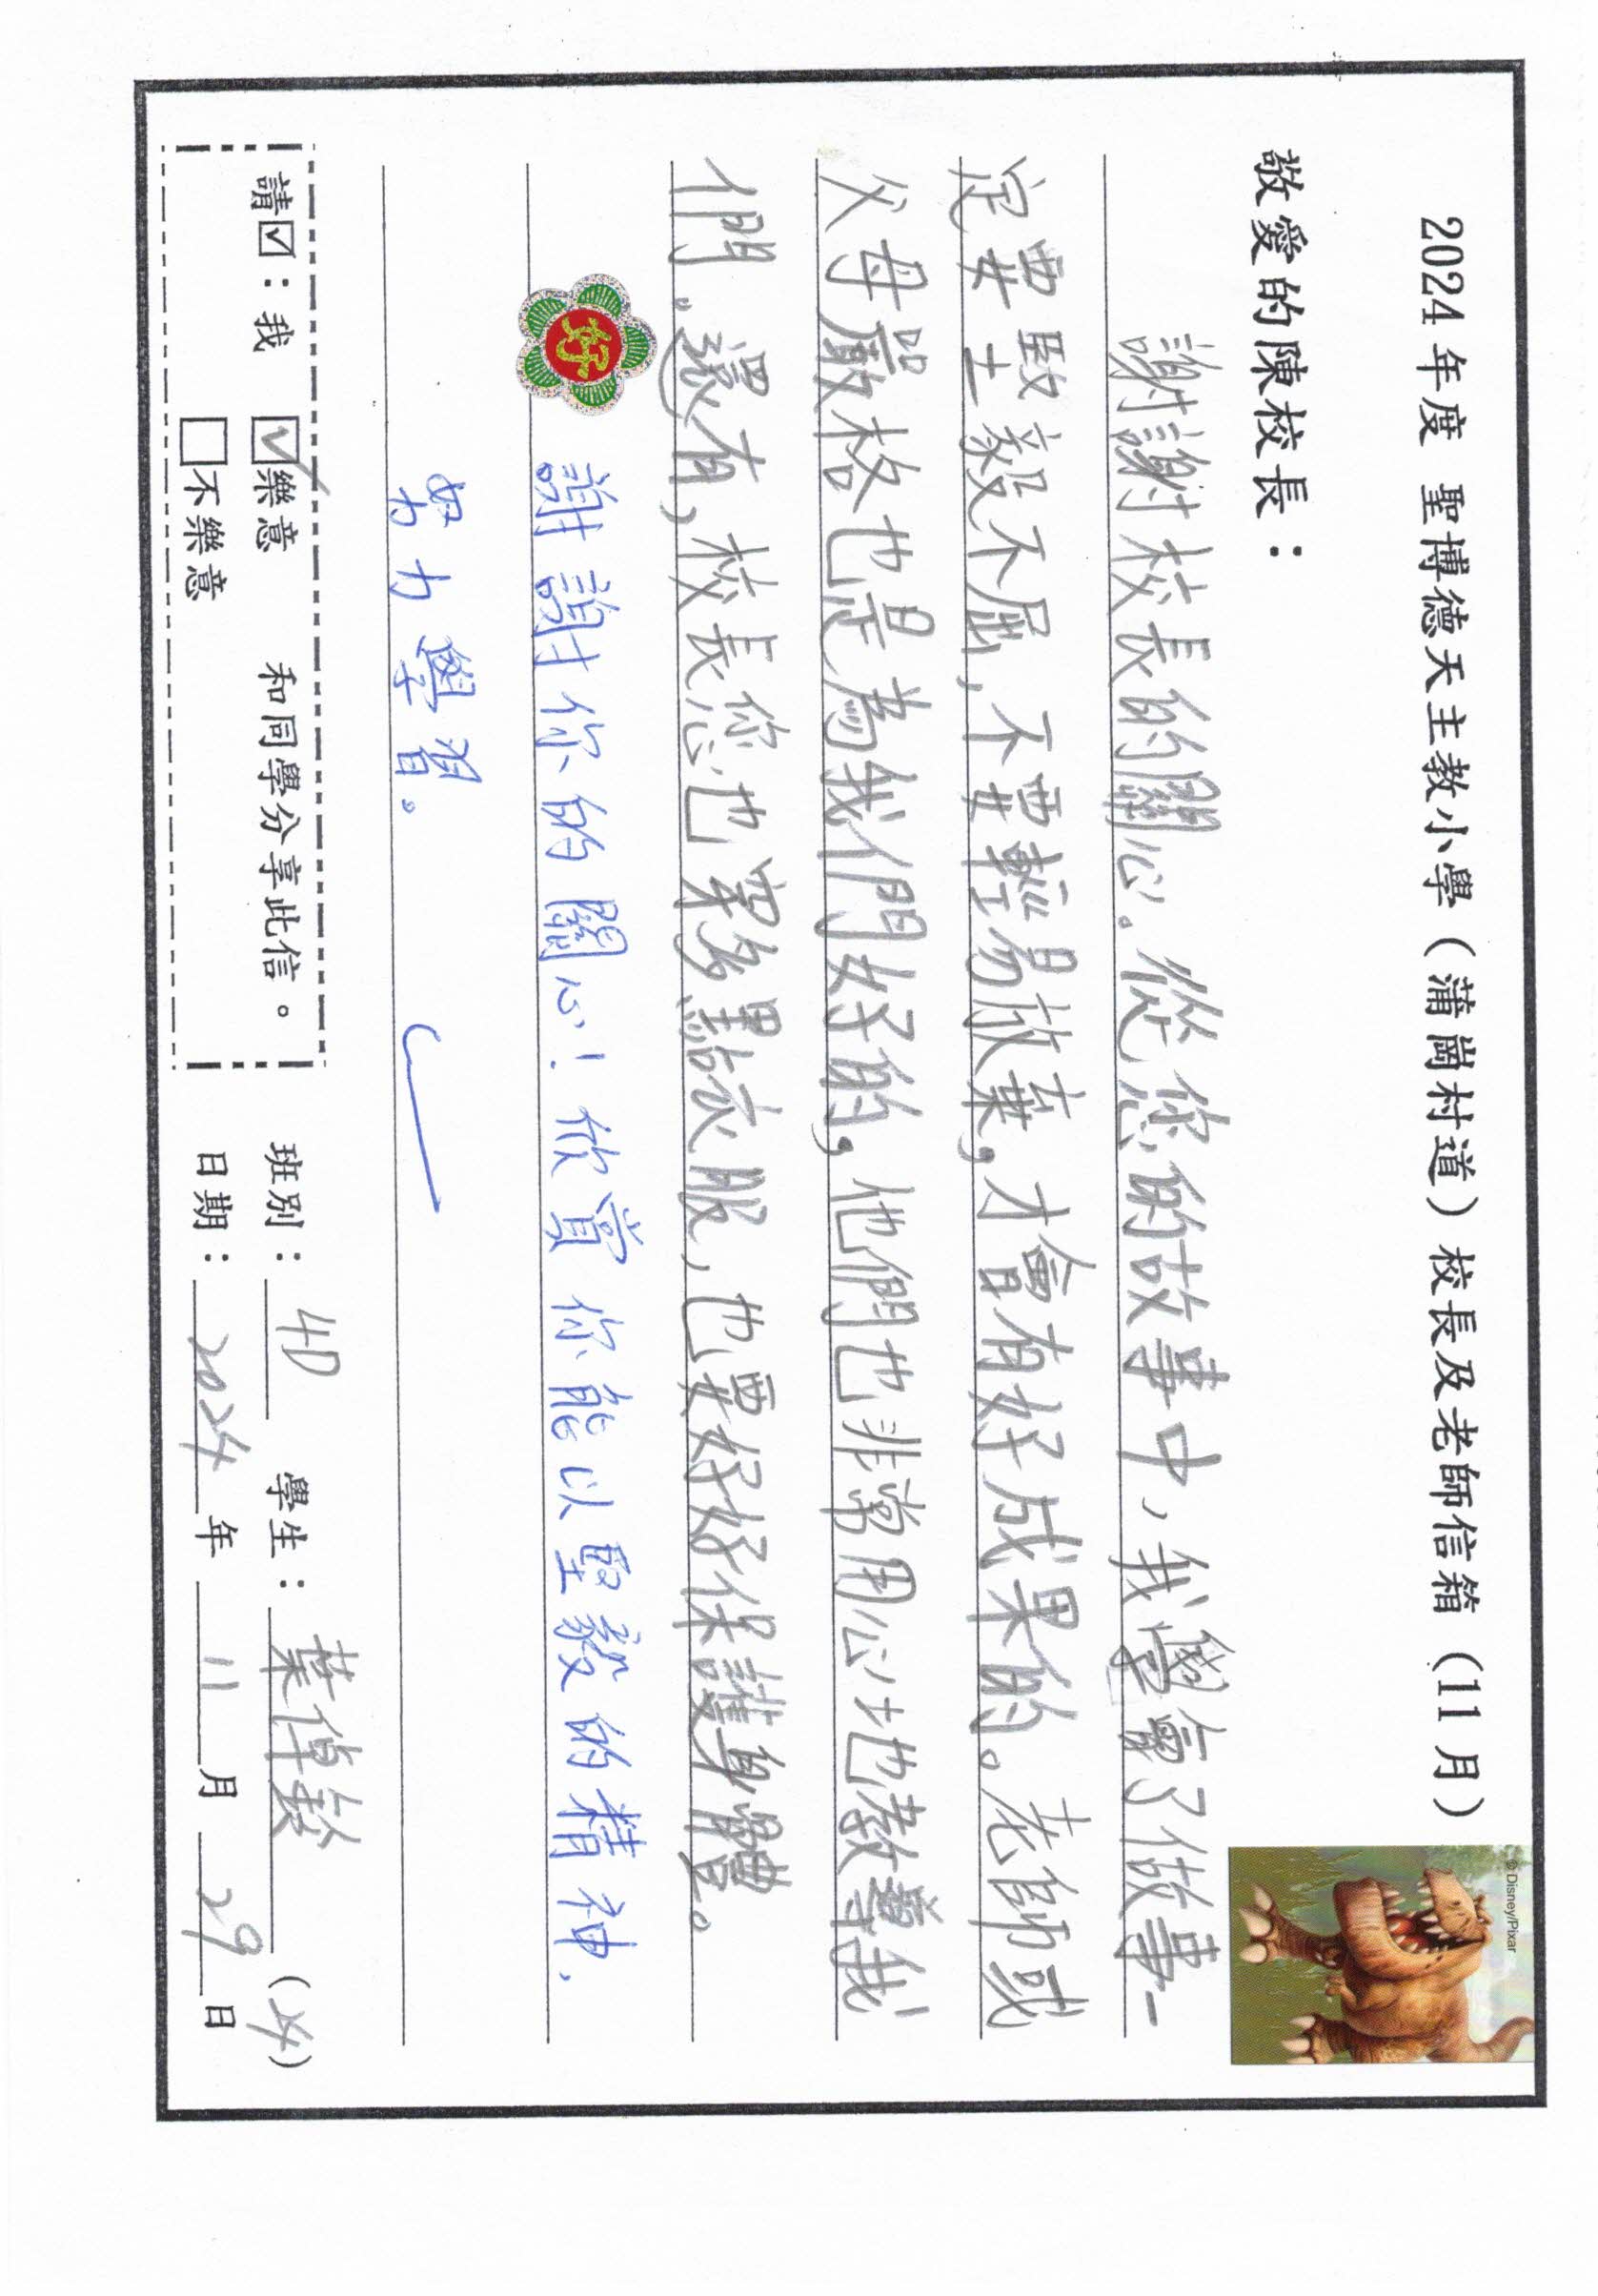 2024年度 聖博德天主教小學（蒲崗村道）校長及老師信箱（11月）
© Disney/Pixar
敬愛的陳校長：
謝謝校長的關心。從您的故事中，我學會了做事一
定要堅毅不屈，不要輕易放棄，才會有好成果的。老師或
父母嚴格也是為我們好的，他們也非常用心地教導我
們。還有，校長您也穿多點衣服，也要好好保護身體。
好
謝謝你的關心！欣賞你能以堅毅的精神，
努力學習。
請☑：我 ☑樂意 和同學分享此信。
□不樂意
班別：4D 學生：葉倬 (24)
日期：2024年11月29日